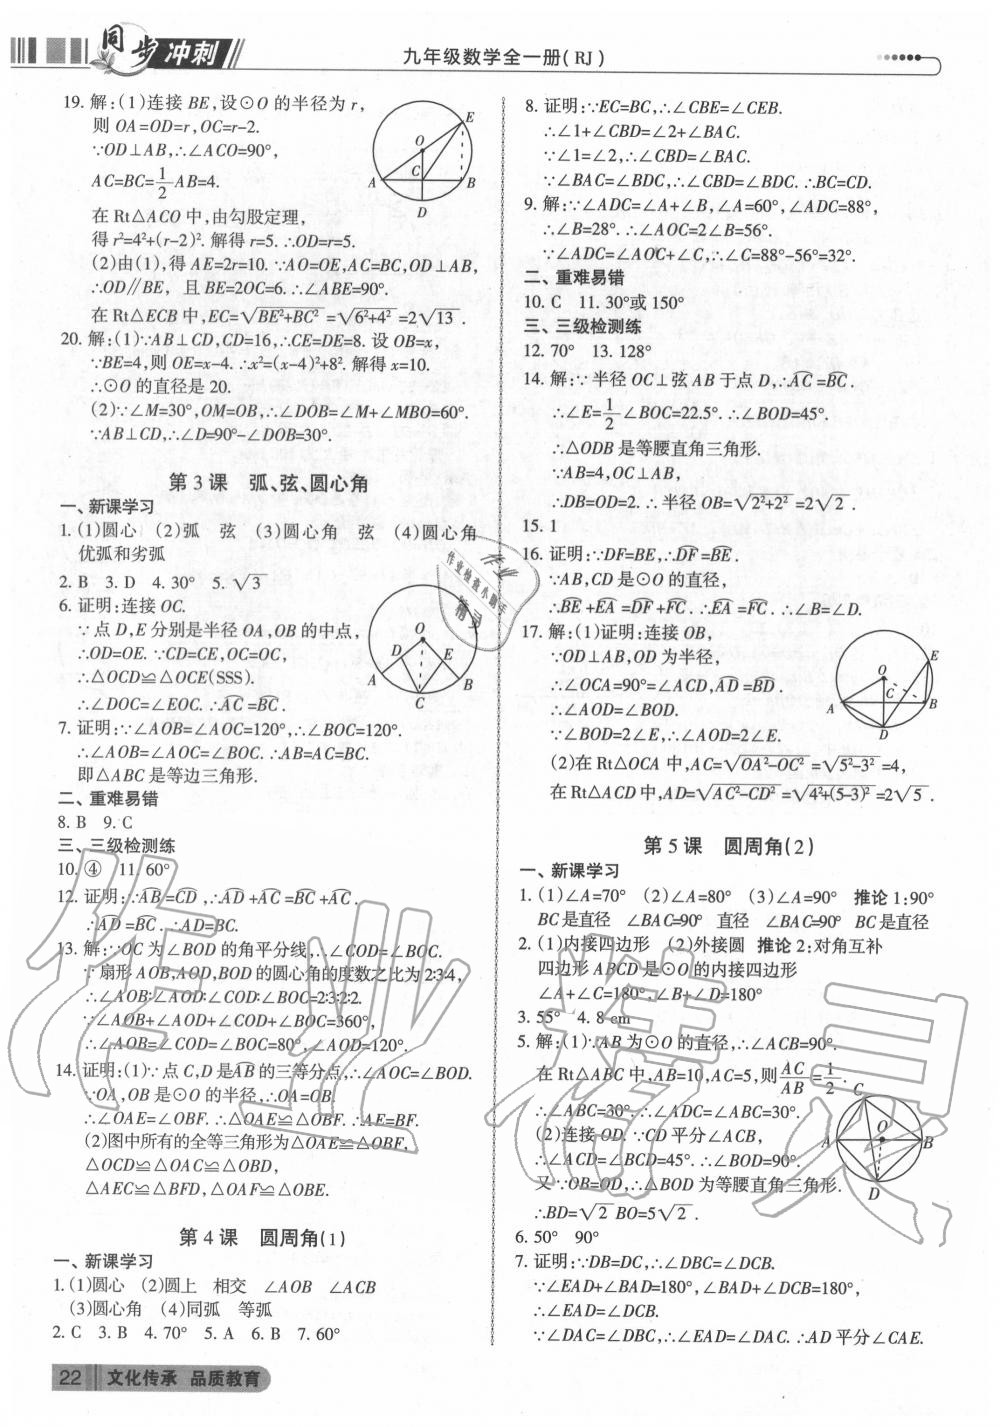 同步冲刺
九年级数学全一册(RJ)
19. 解:(1)连接 BE,设⊙O 的半径为 r,
则 OA=OD=r,OC=r-2.
∵OD⊥AB,∴∠ACO=90°,
AC=BC=1/2AB=4.
在 Rt△ACO 中,由勾股定理,
得 r²=4²+(r-2)². 解得 r=5. ∴OD=r=5.
(2)由(1),得 AE=2r=10. ∵AO=OE,AC=BC,OD⊥AB,
∴OD∥BE, 且 BE=2OC=6. ∴∠ABE=90°.
在 Rt△ECB 中,EC=√(BE²+BC²)=√(6²+4²)=2√13.
20. 解:(1)∵AB⊥CD,CD=16,∴CE=DE=8. 设 OB=x,
∵BE=4,则 OE=x-4. ∴x²=(x-4)²+8². 解得 x=10.
∴⊙O 的直径是 20.
(2)∵∠M=30°,OM=OB,∴∠DOB=∠M+∠MBO=60°.
∵AB⊥CD,∴∠D=90°-∠DOB=30°.
第 3 课 弧、弦、圆心角
一、新课学习
1. (1)圆心 (2)弧 弦 (3)圆心角 弦 (4)圆心角
优弧和劣弧
2. B 3. D 4. 30° 5. √3
6. 证明:连接 OC.
∵点 D,E 分别是半径 OA,OB 的中点,
∴OD=OE. ∵CD=CE,OC=OC,
∴△OCD≌△OCE(SSS).
∴∠DOC=∠EOC. ∴AC⌒=BC⌒.
7. 证明:∵∠AOB=∠AOC=120°,∴∠BOC=120°.
∴∠AOB=∠AOC=∠BOC. ∴AB=AC=BC.
即△ABC 是等边三角形.
二、重难易错
8. B 9. C
三、三级检测练
10. ④ 11. 60°
12. 证明:∵AB⌒=CD⌒,∴AD⌒+AC⌒=BC⌒+AC⌒.
∴AD⌒=BC⌒. ∴AD=BC.
13. 解:∵OC 为∠BOD 的角平分线,∴∠COD=∠BOC.
∵扇形 AOB,AOD,BOD 的圆心角的度数之比为 2∶3∶4,
∴∠AOB∶∠AOD∶∠COD∶∠BOC=2∶3∶2∶2.
∵∠AOB+∠AOD+∠COD+∠BOC=360°,
∴∠AOB=∠COD=∠BOC=80°,∠AOD=120°.
14. 证明:(1)∵点 C,D 是AB⌒的三等分点,∴∠AOC=∠BOD.
∵OA,OB 是⊙O 的半径,∴OA=OB.
∴∠OAE=∠OBF. ∴△OAE≌△OBF. ∴AE=BF.
(2)图中所有的全等三角形为△OAE≌△OBF,
△OCD≌△OAC≌△OBD,
△AEC≌△BFD,△OAF≌△OBE.
第 4 课 圆周角(1)
一、新课学习
1. (1)圆心 (2)圆上 相交 ∠AOB ∠ACB
(3)圆心角 (4)同弧 等弧
2. C 3. B 4. 70° 5. A 6. B 7. 60°
8. 证明:∵EC=BC,∴∠CBE=∠CEB.
∴∠1+∠CBD=∠2+∠BAC.
∵∠1=∠2,∴∠CBD=∠BAC.
∵∠BAC=∠BDC,∴∠CBD=∠BDC. ∴BC=CD.
9. 解:∵∠ADC=∠A+∠B,∠A=60°,∠ADC=88°,
∴∠B=28°. ∴∠AOC=2∠B=56°.
∵∠ADC=∠AOC+∠C,∴∠C=88°-56°=32°.
二、重难易错
10. C 11. 30°或 150°
三、三级检测练
12. 70° 13. 128°
14. 解:∵半径 OC⊥弦 AB 于点 D,∴AC⌒=BC⌒.
∴∠E=1/2∠BOC=22.5°. ∴∠BOD=45°.
∴△ODB 是等腰直角三角形.
∵AB=4,OC⊥AB,
∴DB=OD=2. ∴半径 OB=√(2²+2²)=2√2.
15. 1
16. 证明:∵DF=BE,∴DF⌒=BE⌒.
∵AB,CD 是⊙O 的直径,
∴BE⌒+EA⌒=DF⌒+FC⌒. ∴EA⌒=FC⌒. ∴∠B=∠D.
17. 解:(1)证明:连接 OB,
∵OD⊥AB,OD 为半径,
∴∠OCA=90°=∠ACD,AD⌒=BD⌒.
∴∠AOD=∠BOD.
∵∠BOD=2∠E,∴∠AOD=2∠E.
(2)在 Rt△OCA 中,AC=√(OA²-OC²)=√(5²-3²)=4,
在 Rt△ACD 中,AD=√(AC²-CD²)=√(4²+(5-3)²)=2√5.
第 5 课 圆周角(2)
一、新课学习
1. (1)∠A=70° (2)∠A=80° (3)∠A=90° 推论 1:90°
BC 是直径 ∠BAC=90° 直径 ∠BAC=90° BC 是直径
2. (1)内接四边形 (2)外接圆 推论 2:对角互补
四边形 ABCD 是⊙O 的内接四边形
∠A+∠C=180°,∠B+∠D=180°
3. 55° 4. 8 cm
5. 解:(1)∵AB 为⊙O 的直径,∴∠ACB=90°.
在 Rt△ABC 中,AB=10,AC=5,则AC/AB=1/2.
∴∠ABC=30°. ∴∠ADC=∠ABC=30°.
(2)连接 OD. ∵CD 平分∠ACB,
∴∠ACD=∠BCD=45°. ∴∠BOD=90°.
又∵OB=OD,∴△BOD 为等腰直角三角形.
∴BD=√2BO=5√2.
6. 50° 90°
7. 证明:∵DB=DC,∴∠DBC=∠DCB.
∵∠EAD+∠BAD=180°,∠BAD+∠DCB=180°,
∴∠EAD=∠DCB.
∵∠DAC=∠DBC,∴∠EAD=∠DAC. ∴AD 平分∠CAE.
22 文化传承 品质教育
作业精灵
作业检查小助手